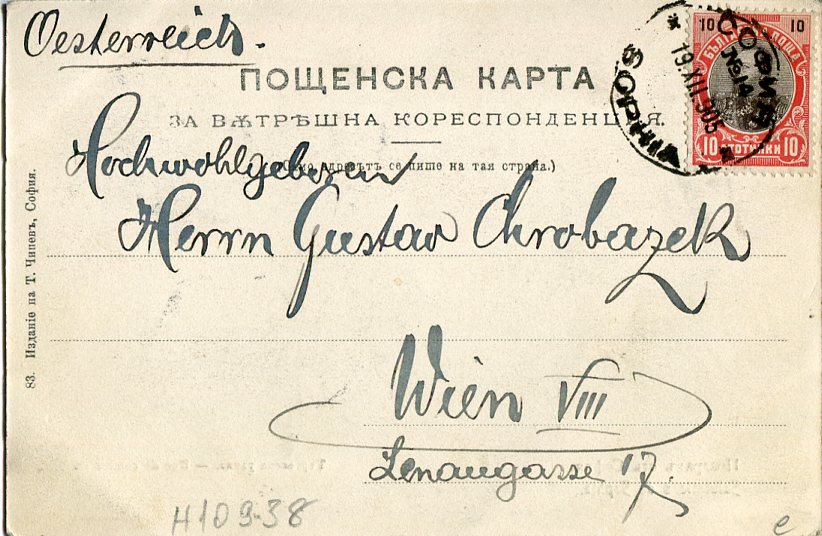 Oesterreich.
ПОЩЕНСКА КАРТА
ЗА ВѪТРѢШНА КОРЕСПОНДЕНЦИЯ.
(Само адресътъ се пише на тая страна.)
Hochwohlgeboren
Herrn Gustav Chrobazek
Wien VIII
Lenaugasse 17
83. Издание на Т. Чипевъ, София.
10 10
БЪЛГАРСКА ПОЩА
10 СТОТИНКИ 10
СОФИЯ
№14
19.XII.905
SOPHIA
H109-38
e